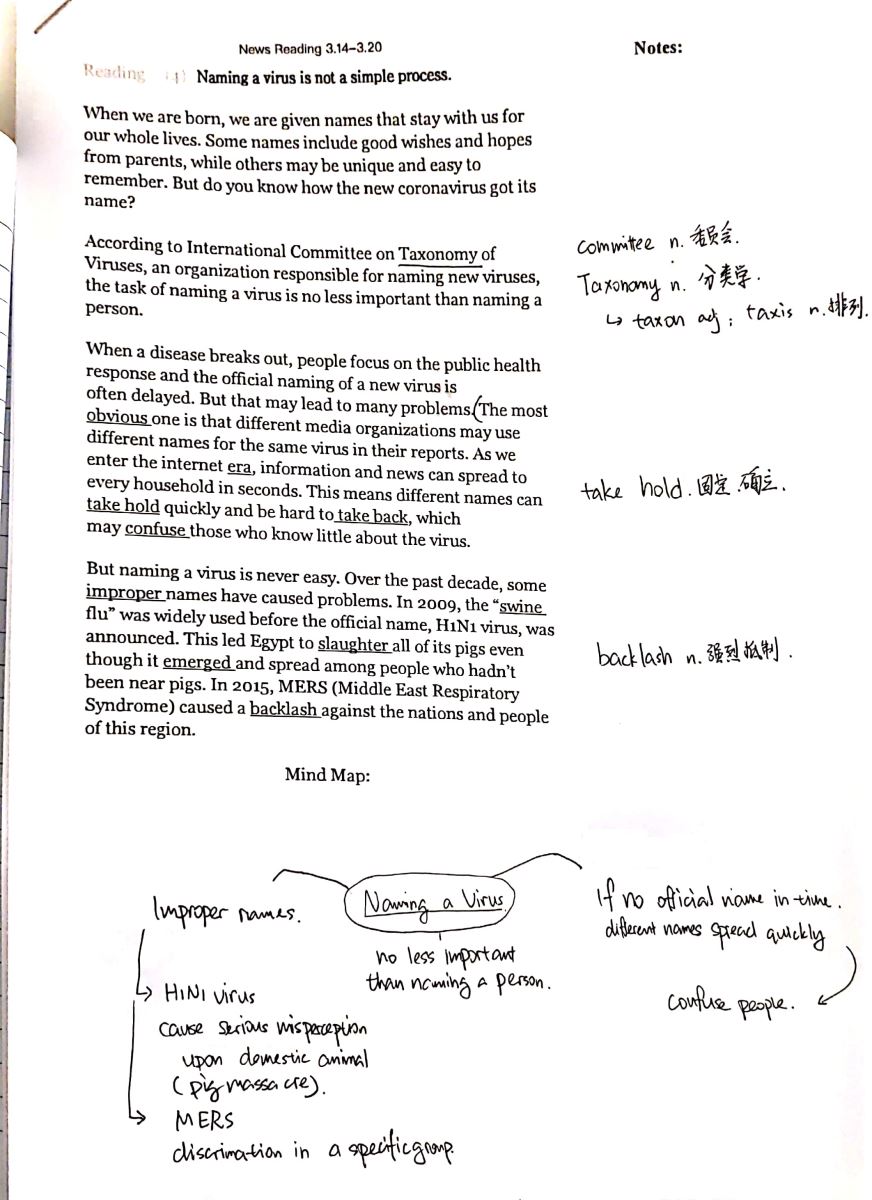 News Reading 3.14–3.20
Notes:
Reading (4) Naming a virus is not a simple process.
When we are born, we are given names that stay with us for
our whole lives. Some names include good wishes and hopes
from parents, while others may be unique and easy to
remember. But do you know how the new coronavirus got its
name?
According to International Committee on Taxonomy of
Viruses, an organization responsible for naming new viruses,
the task of naming a virus is no less important than naming a
person.
committee n. 委员会.
Taxonomy n. 分类学.
↳ taxon adj; taxis n.排列.
When a disease breaks out, people focus on the public health
response and the official naming of a new virus is
often delayed. But that may lead to many problems.(The most
obvious one is that different media organizations may use
different names for the same virus in their reports. As we
enter the internet era, information and news can spread to
every household in seconds. This means different names can
take hold quickly and be hard to take back, which
may confuse those who know little about the virus.
take hold.固定.确立.
But naming a virus is never easy. Over the past decade, some
improper names have caused problems. In 2009, the “swine
flu” was widely used before the official name, H1N1 virus, was
announced. This led Egypt to slaughter all of its pigs even
though it emerged and spread among people who hadn’t
been near pigs. In 2015, MERS (Middle East Respiratory
Syndrome) caused a backlash against the nations and people
of this region.
backlash n.强烈抵制.
Mind Map:
Naming a Virus
no less important
than naming a person.
Improper names.
H1N1 virus
cause serious misperception
upon domestic animal
(pig massacre).
MERS
discrimation in a specific group.
If no official name in time.
different names spread quickly
confuse people.